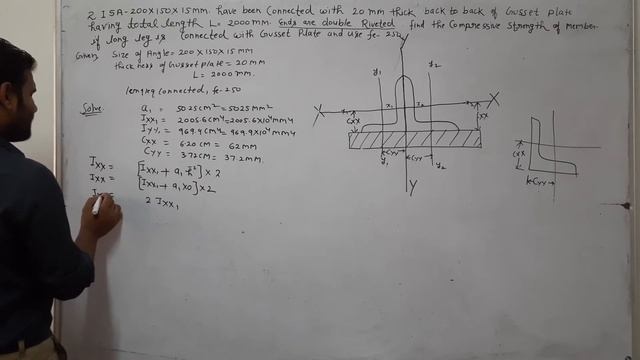 2 ISA-200X150X15mm. have been Connected with 20 mm thick back to back of Gusset plate
having dodal length L= 2000mm. Ends are double Riveted. find the Compressive Strength of Member
if long leg is Connected with Gusset Plate and use fe-250.
Given Size of Angle=200X150X15 mm
thickness of Gusset plate = 20 mm
L= 2000 mm.
leg connected, fe-250
Solve.
a1 = 50.25cm² = 5025 mm²
Ixx1 = 2005.6cm⁴ = 2005.6X10⁴mm⁴
Iyy1 = 969.9 cm⁴ = 969.9X10⁴mm⁴
Cxx = 6.20 cm = 62mm
Cyy = 3.72cm = 37.2mm.
Ixx = [Ixx1 + a1 h²] X 2
Ixx = [Ixx1 + a1 X0] X 2
2 Ixx1
Y
y1
y2
X
x1
x2
X
Cxx
Cxx
Cyy
Cyy
y1
y2
Y
Cxx
Cyy